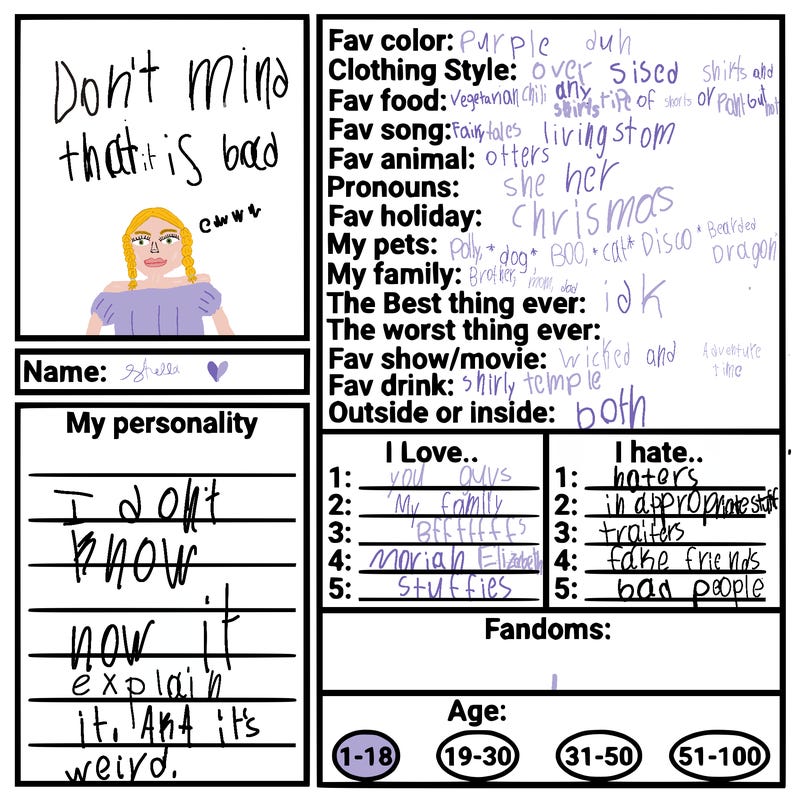 Don't mind
that it is bad
ewww
Name: Stella
My personality
I don't
know
now it
explain
it. AKA it's
weird.
Fav color: Purple duh
Clothing Style: over sised shirts and
any
Fav food: vegetarian chili shirts tipe of shorts or pant but not
Fav song: Fairytales livingstom
Fav animal: otters
Pronouns: she her
Fav holiday: chrismas
My pets: Polly,*dog* BOO,*cat* Disco *Bearded
Dragon
My family: Brother, mom, dad
The Best thing ever: idk
The worst thing ever:
Fav show/movie: wicked and Adventure
time
Fav drink: shirly temple
Outside or inside: both
I Love..
1: you guys
2: My family
3: Bfffffff's
4: moriah Elizabeth
5: stuffies
I hate..
1: haters
2: inappropriate stuff
3: traiters
4: fake friends
5: bad people
Fandoms:
Age:
1-18 19-30 31-50 51-100